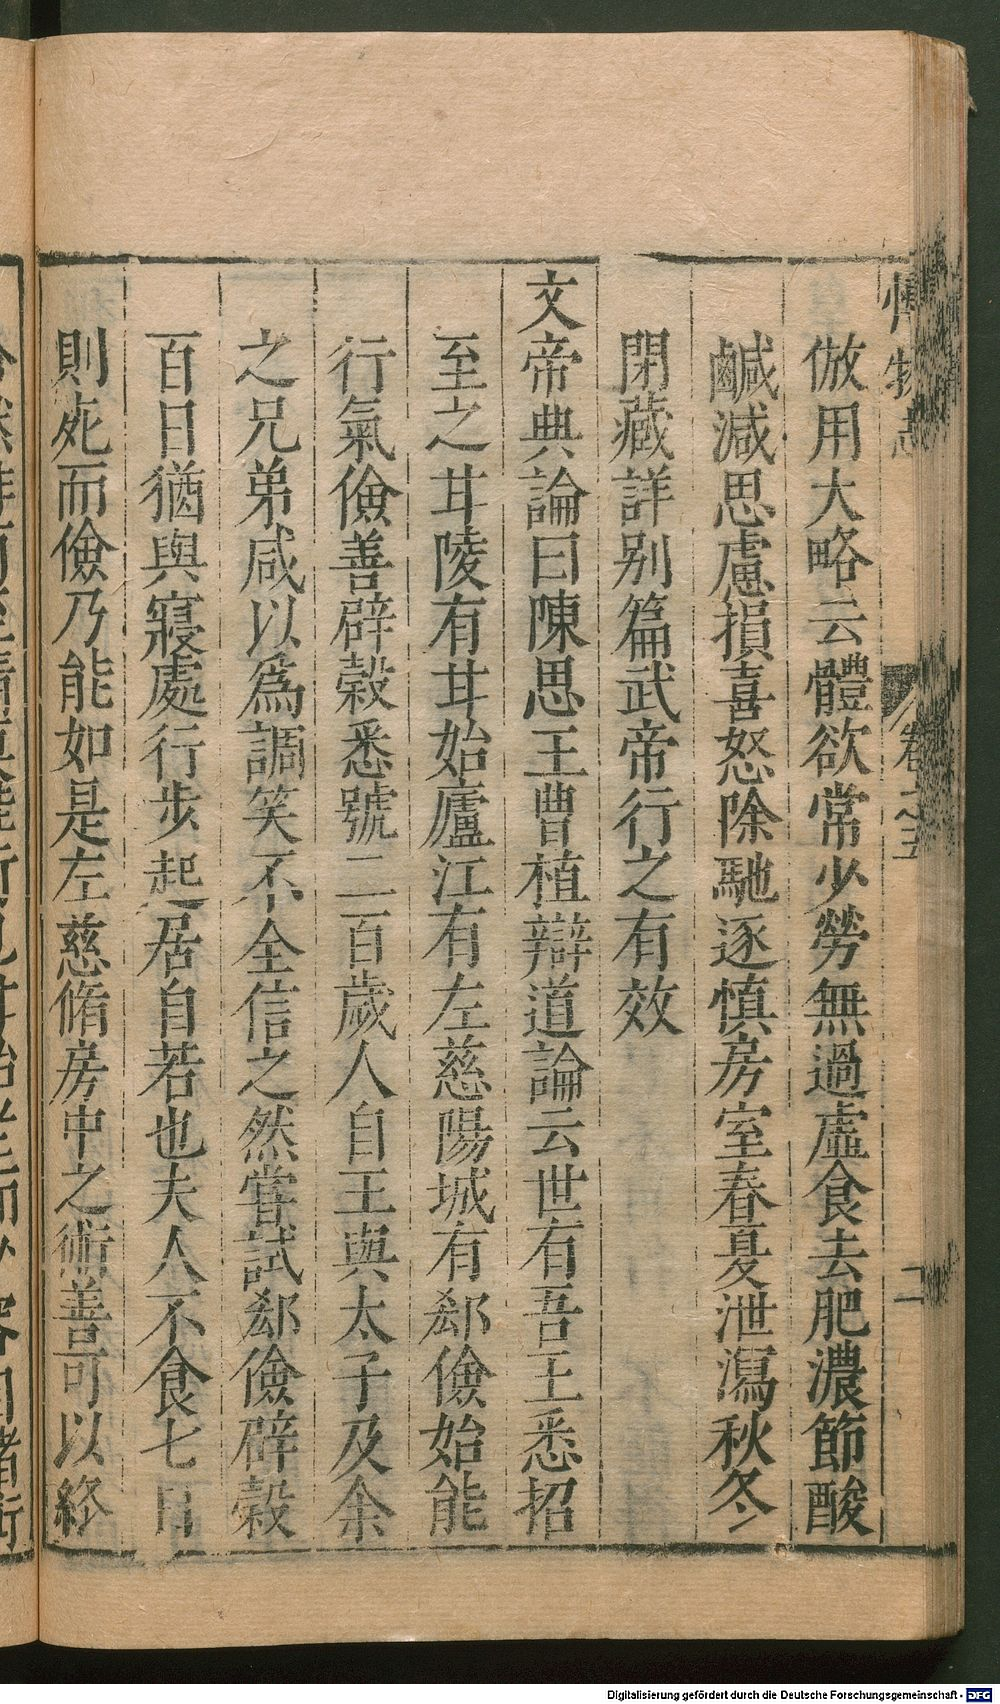 倣用大略云體欲常少勞無過虛食去肥濃節酸
鹹減思慮損喜怒除馳逐慎房室春夏泄瀉秋冬
閉藏詳別篇武帝行之有效
文帝典論曰陳思王曹植辯道論云世有吾王悉招
至之甘陵有甘始廬江有左慈陽城有郄儉始能
行氣儉善辟穀悉號二百歲人自王與太子及余
之兄弟咸以爲調笑不全信之然嘗試郄儉辟穀
百日猶與寢處行步起居自若也夫人不食七日
則死而儉乃能如是左慈脩房中之術善可以終
博物志
卷之五
二
Digitalisierung gefördert durch die Deutsche Forschungsgemeinschaft - DFG